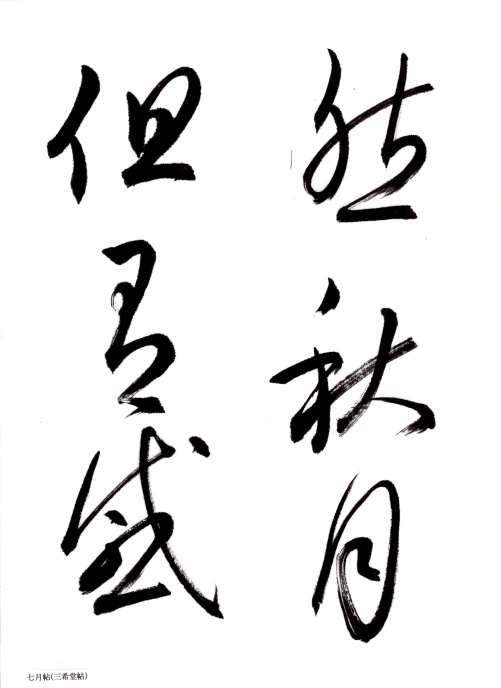 然秋月
但有感
七月帖(三希堂帖)